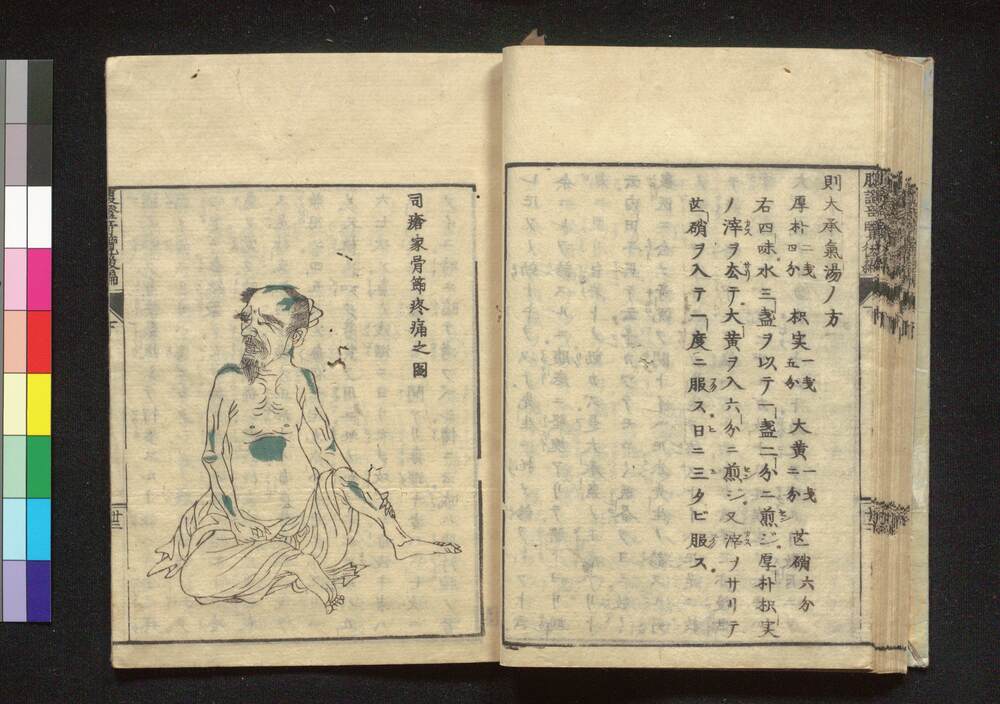 則大承氣湯ノ方
厚朴二戔四分 枳実一戔五分 大黄一戔二分 芒硝六分
右四味水三盞ヲ以テ一盞二分ニ煎ジ厚朴枳実
ノ滓ヲ去テ大黄ヲ入六分ニ煎ジ又滓ヲサリテ
芒硝ヲ入テ一度ニ服ス日ニ三タビ服ス
廿二
司瘡家骨節疼痛之圖
廿三